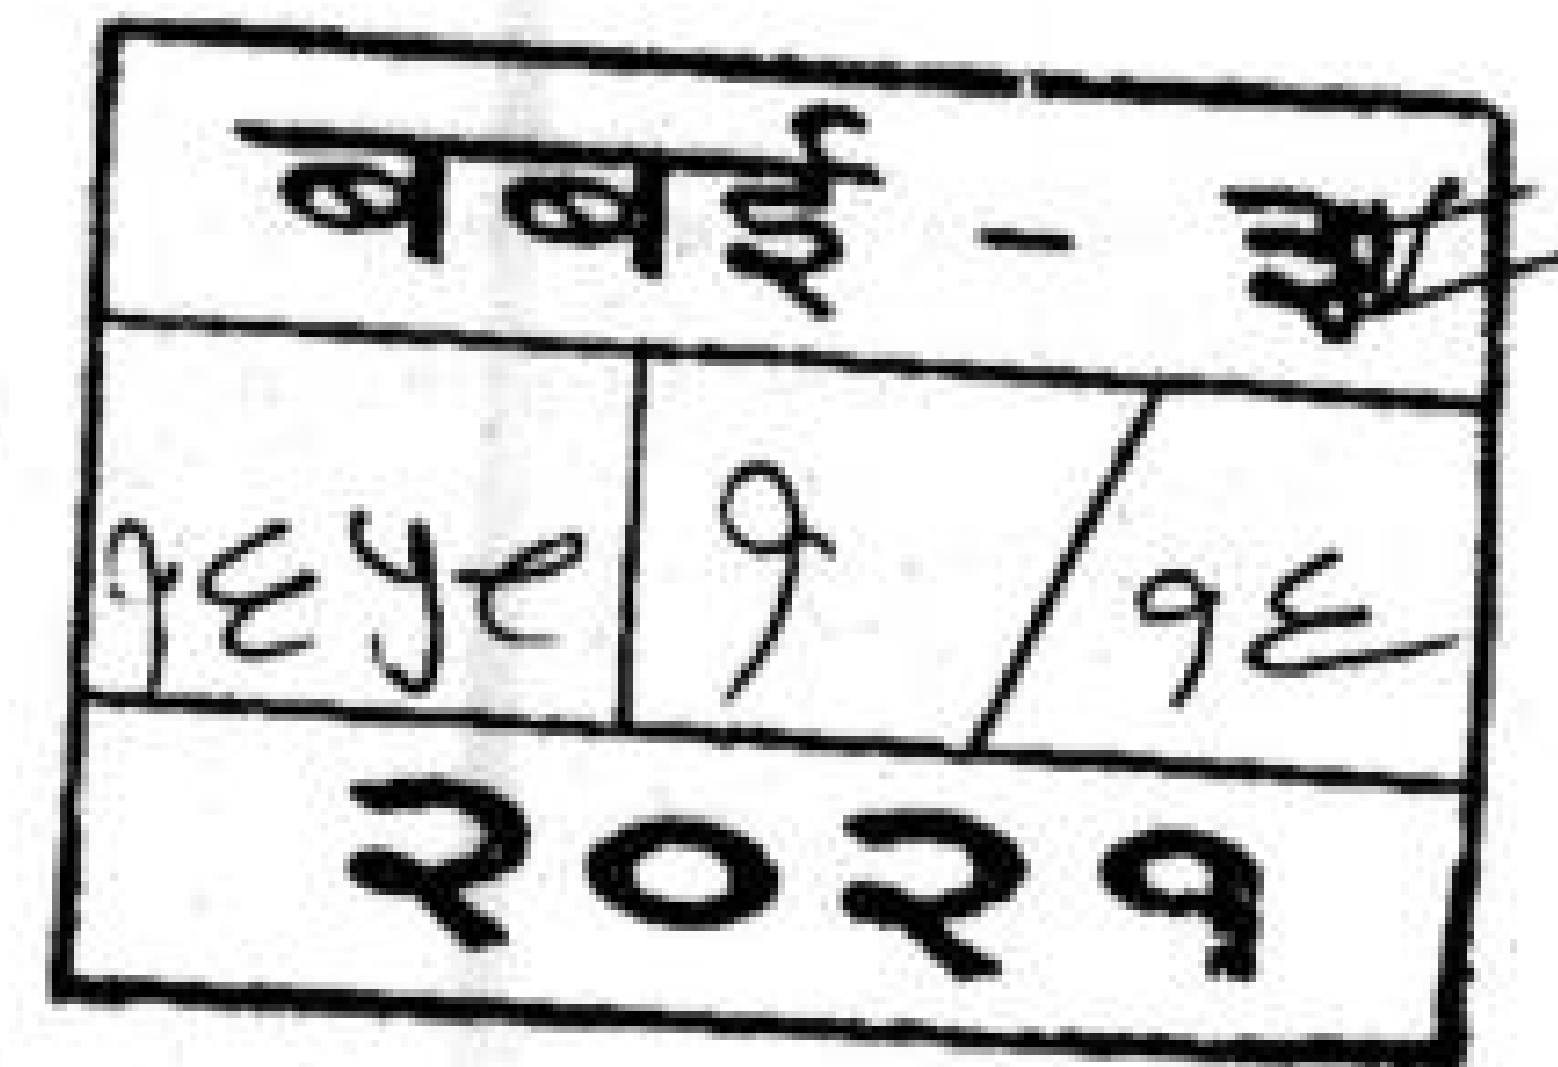 बबई -
१६५९ १ / १६
२०२१